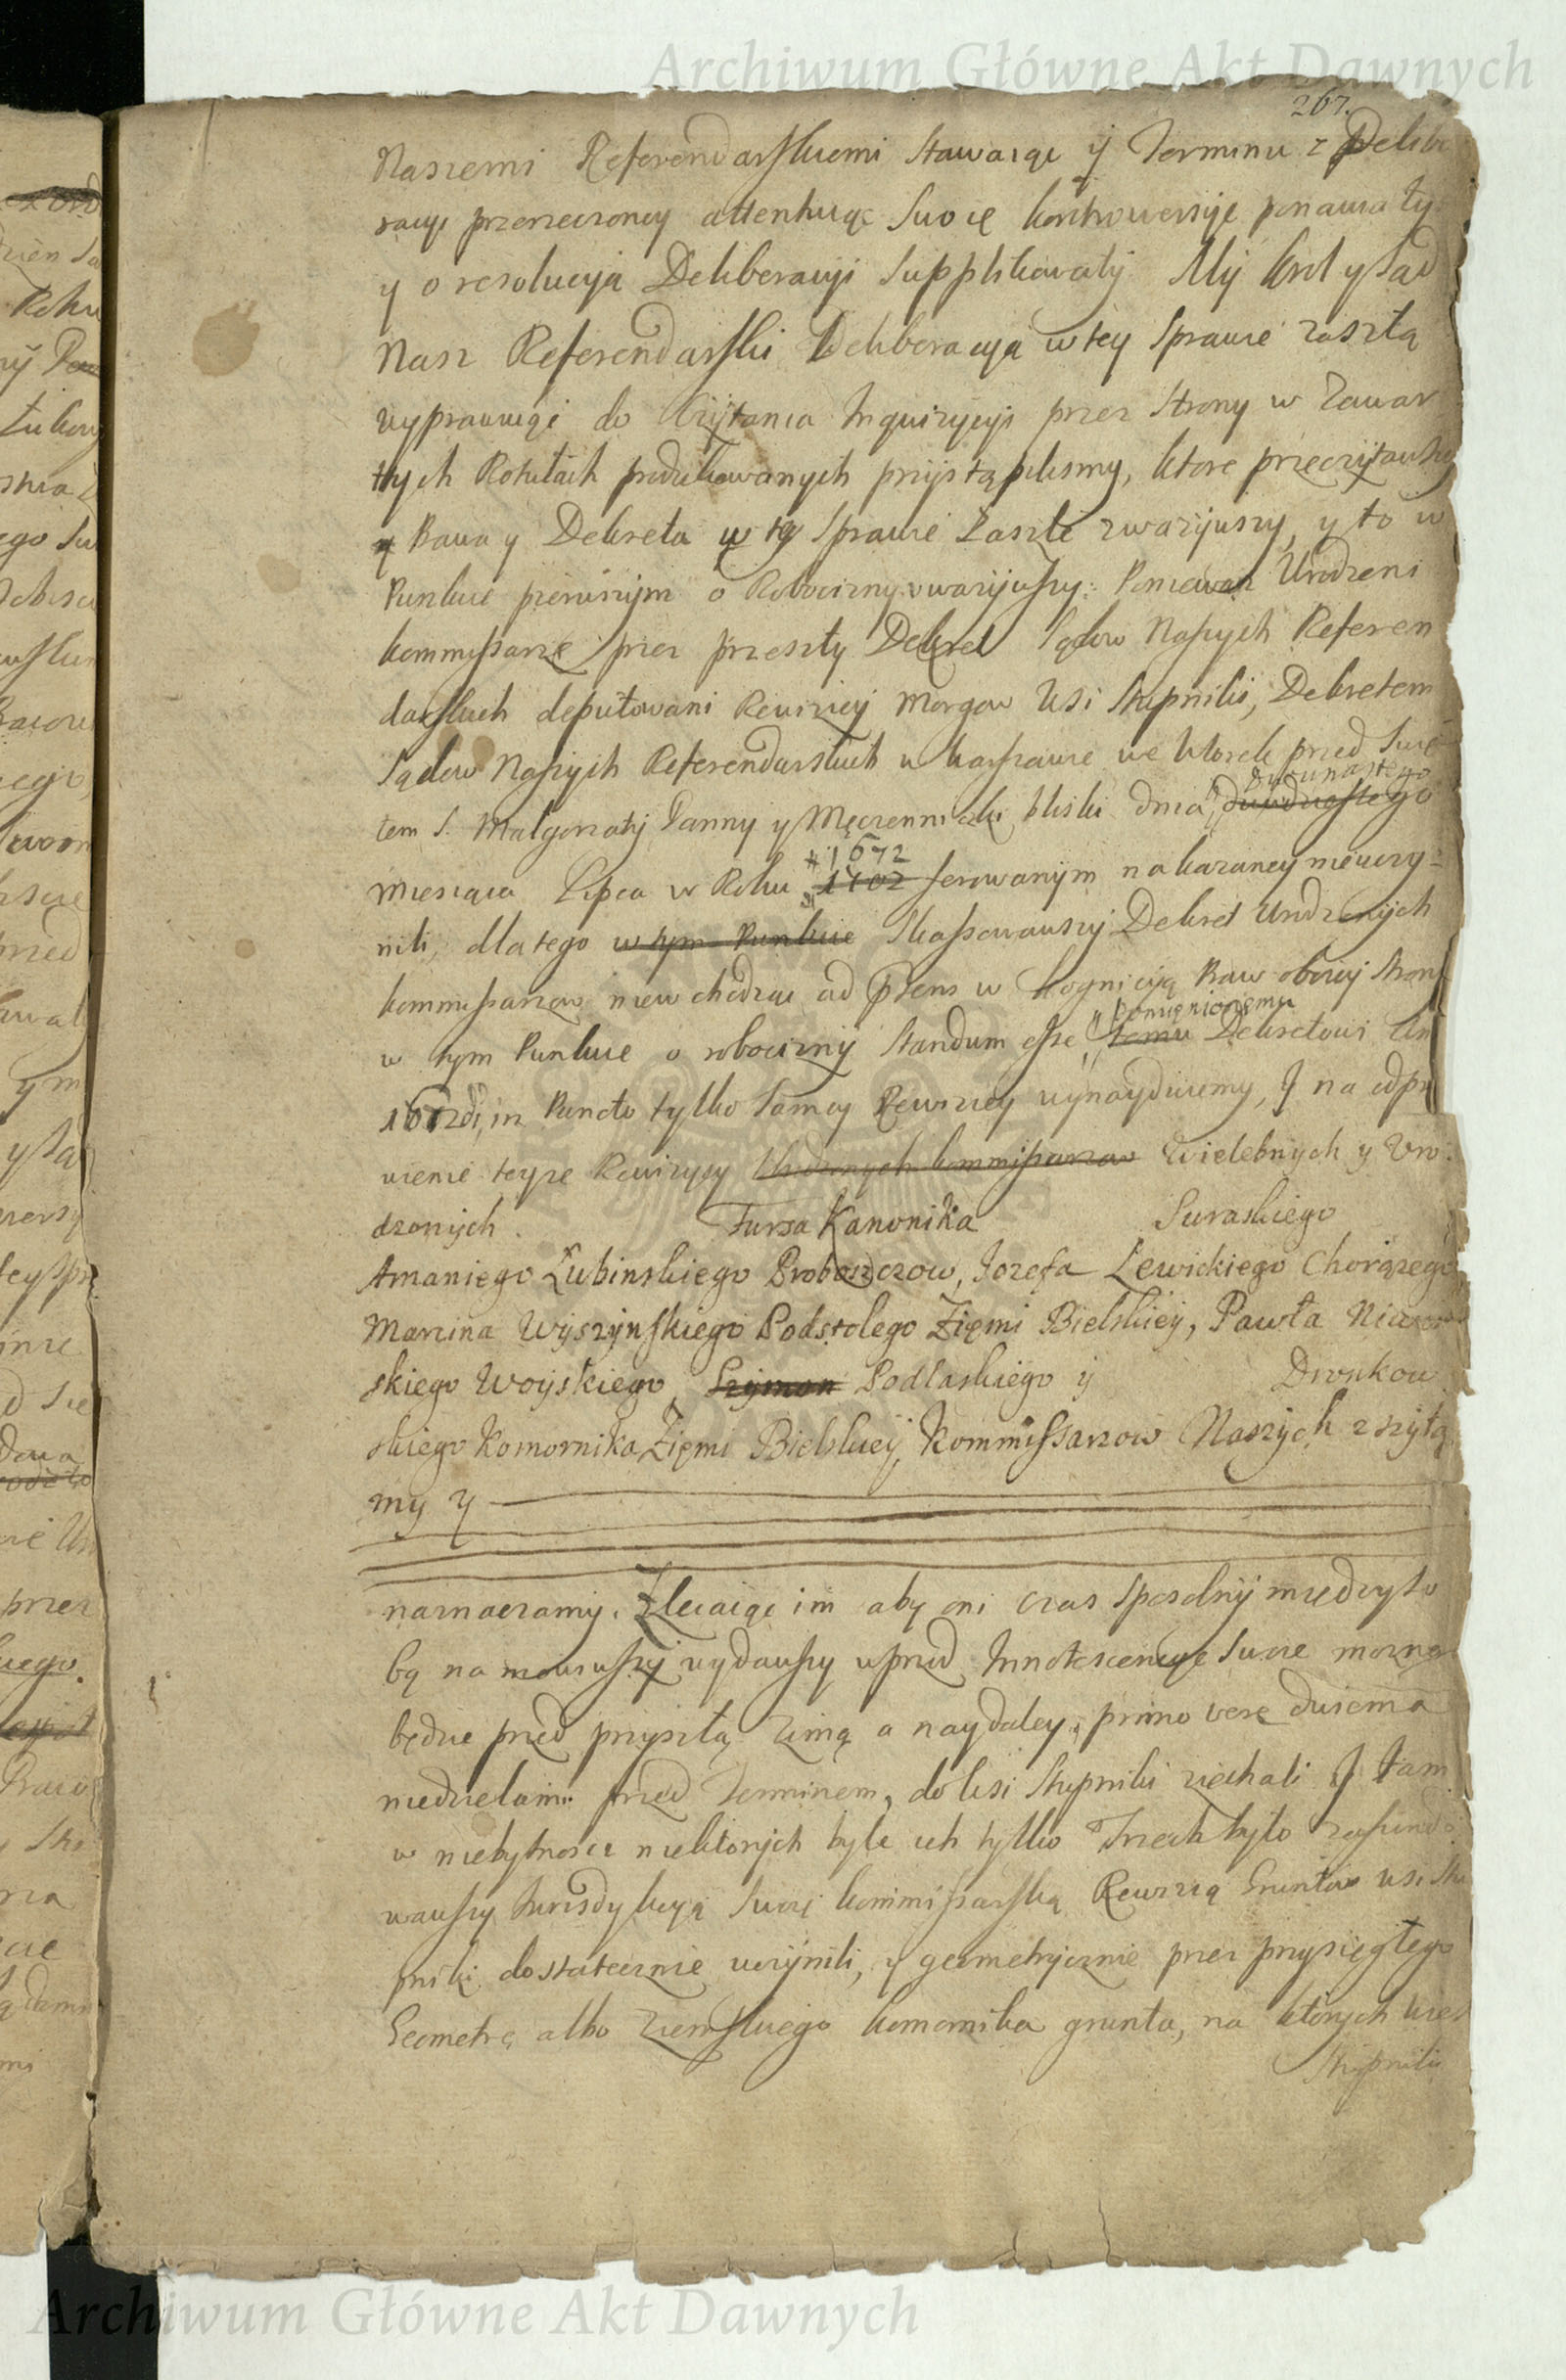 Archiwum Główne Akt Dawnych
267.
Naszemi Referendarskiemi stawaiąc y Terminu z Delibe
racyi przerzeczoney attentuiąc swoie kontrowersyie ponawiały
y o resolucyią Deliberacyi supplikowały My Krol y Sąd
Nasz Referendarski Deliberacyią w tey Sprawie zaszłą
wyprawuiąc do czytania Inquizycyi przez Strony w Zawar
tych Rotułach produkowanych przystąpiliśmy, ktore przeczytawszy
Prawa y Dekreta w tey Sprawie Zaszłe zwazywszy, y to w
Punkcie pierwszym o Robocizny uwazywszy: Poniewasz Urodzeni
Kommissarze przez przeszły Dekret Sądow Naszych Referen
darskich deputowani Rewizyey Morgow Wsi Stupniki, Dekretem
Sądow Naszych Referendarskich w Warszawie we Wtorek przed Swię
dwunastego
tem S. Małgorzaty Panny y Męczenniczki bliski dnia dwudziestego
1672
miesiąca Lipca w Roku 1702 ferowanym nakazaney nie uczy=
nili, dlatego w tym Punkcie Skassowawszy Dekret Urodzonych
Kommissarzow niewchodząc ad psens w Kognicyią Praw oboiey Strony
pomienionemu
w tym Punkcie o robocizny standum esse temu Dekretowi An
1672di, in Puncto tylko samey Rewizyey wynayduiemy, J na odpra
wienie teyze Rewizyey Urodzonych Kommissarzow Wielebnych y Uro
dzonych Fursa Kanonika Suraskiego
Amaniego Łubinskiego Proboszczow, Jozefa Lewickiego Chorązego
Marcina Wyszynskiego Podstolego Ziemi Bielskiey, Pawła
skiego Woyskiego Szymon Podlaskiego y Dronkow
skiego Komornika Ziemi Bielskiey, Kommissarzow Naszych z szyłą
my y
naznaczamy. Zlecaiąc im aby oni czas sposobny między so
bą namowiwszy wydawszy wprzod Innotescencyie swoie mozna
będzie przed przyszłą zimą a naydaley primo vere dwiema
niedzielami przed Terminem, do Wsi Stupniki ziechali J tam
w niebytnosci niektorych byle ich tylko Trzech było zafundo
wawszy Jurisdykcyią swoię kommissarską Rewizią Gruntow wsi Stu
pniki dostatecznie uczynili, y geometrycznie przez przysięgłego
Geometrę albo ziemskiego komornika grunta, na ktorych wieś
Stupniki
Archiwum Główne Akt Dawnych